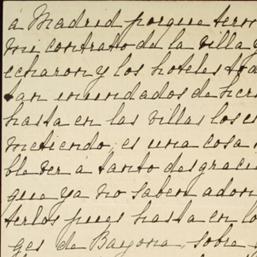 á Madrid porque term
mi contrato de la villa y
echaron y los hoteles
tan inundados de
hasta en las villas los es
metiendo, es una cosa
ble ver a tanto desgraci
que ya no saben adon
terlos pues hasta en lo
ges de Bayona, sobre